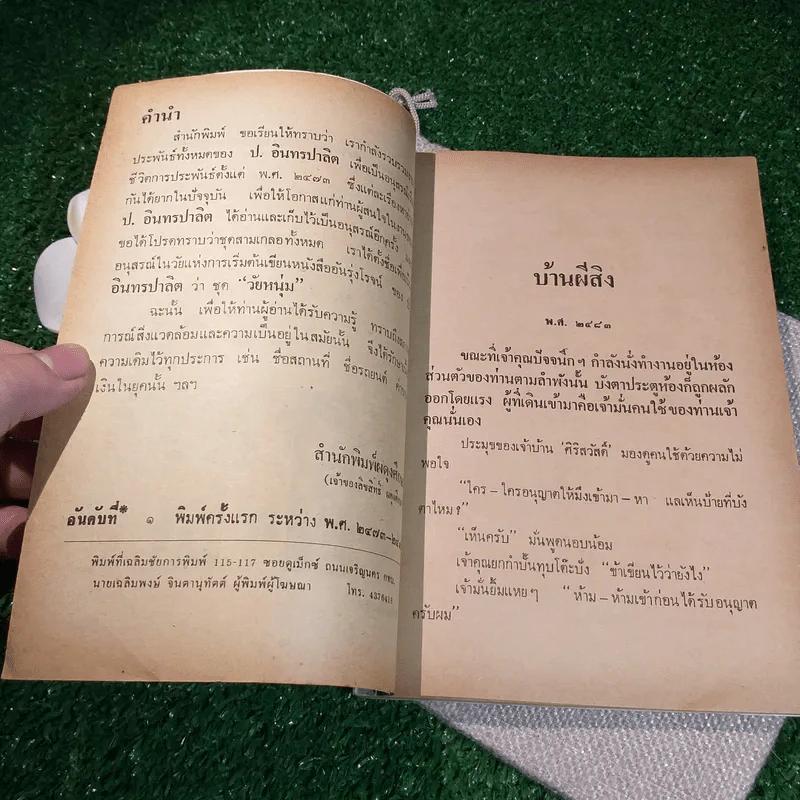 คำนำ
สำนักพิมพ์ ขอเรียนให้ทราบว่า เรากำลังรวบรวม
ประพันธ์ทั้งหมดของ ป. อินทรปาลิต เพื่อเป็นอนุสรณ์
ชีวิตการประพันธ์ตั้งแต่ พ.ศ. ๒๔๗๓ ซึ่งแต่ละเรื่อง
กันได้ยากในปัจจุบัน เพื่อให้โอกาสแก่ท่านผู้สนใจใน
ป. อินทรปาลิต ได้อ่านและเก็บไว้เป็นอนุสรณ์อีกครั้ง
ขอได้โปรดทราบว่าชุดสามเกลอทั้งหมด เราได้ตั้งชื่อ
อนุสรณ์ในวัยแห่งการเริ่มต้นเขียนหนังสืออันรุ่งโรจน์ ของ
อินทรปาลิต ว่า ชุด "วัยหนุ่ม"
ฉะนั้น เพื่อให้ท่านผู้อ่านได้รับความรู้ ทราบถึง
การณ์สิ่งแวดล้อมและความเป็นอยู่ในสมัยนั้น จึงได้รักษา
ความเดิมไว้ทุกประการ เช่น ชื่อสถานที่ ชื่อรถยนต์
เงินในยุคนั้น ฯลฯ
สำนักพิมพ์ผดุงศึกษา
(เจ้าของลิขสิทธิ์
อันดับที่* ๑ พิมพ์ครั้งแรก ระหว่าง พ.ศ. ๒๔๗๓–
พิมพ์ที่เฉลิมชัยการพิมพ์ 115-117 ซอยดูเม็กซ์ ถนนเจริญนคร กทม.
นายเฉลิมพงษ์ จินดานุทัตต์ ผู้พิมพ์ผู้โฆษณา โทร.
บ้านผีสิง
พ.ศ. ๒๔๘๓
ขณะที่เจ้าคุณปัจจนึก ๆ กำลังนั่งทำงานอยู่ในห้อง
ส่วนตัวของท่านตามลำพังนั้น บังตาประตูห้องก็ถูกผลัก
ออกโดยแรง ผู้ที่เดินเข้ามาคือเจ้ามั่นคนใช้ของท่านเจ้า
คุณนั่นเอง
ประมุขของเจ้าบ้าน 'ศิริสวัสดิ์' มองดูคนใช้ด้วยความไม่
พอใจ
"ใคร – ใครอนุญาตให้มึงเข้ามา – หา แลเห็นป้ายที่บัง
ตาไหม?"
"เห็นครับ" มั่นพูดนอบน้อม
เจ้าคุณยกกำปั้นทุบโต๊ะปัง "ข้าเขียนไว้ว่ายังไง"
เจ้ามั่นยิ้มแหย ๆ "ห้าม – ห้ามเข้าก่อนได้รับอนุญาต
ครับผม"